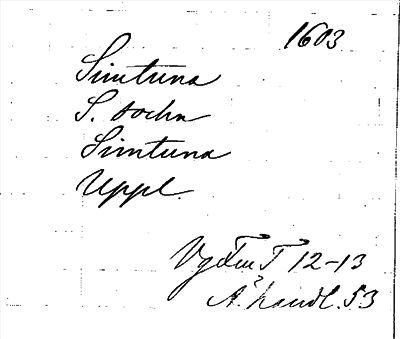 1603
Simtuna
S. socken
Simtuna
Uppl.
12-13
Ä. handl. 53